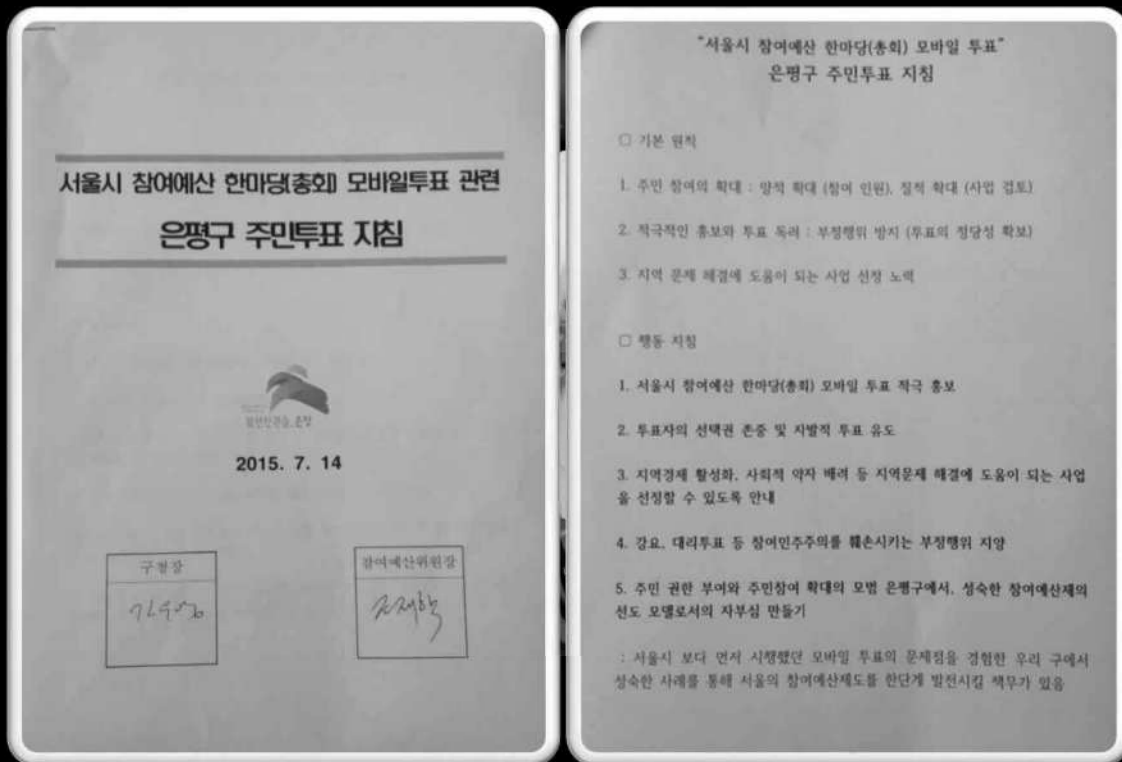 서울시 참여예산 한마당(총회) 모바일투표 관련
은평구 주민투표 지침
은평
2015. 7. 14
구청장
참여예산위원장
"서울시 참여예산 한마당(총회) 모바일 투표"
은평구 주민투표 지침
□ 기본 원칙
1. 주민 참여의 확대 : 양적 확대 (참여 인원), 질적 확대 (사업 검토)
2. 적극적인 홍보와 투표 독려 : 부정행위 방지 (투표의 정당성 확보)
3. 지역 문제 해결에 도움이 되는 사업 선정 노력
□ 행동 지침
1. 서울시 참여예산 한마당(총회) 모바일 투표 적극 홍보
2. 투표자의 선택권 존중 및 자발적 투표 유도
3. 지역경제 활성화, 사회적 약자 배려 등 지역문제 해결에 도움이 되는 사업
을 선정할 수 있도록 안내
4. 강요, 대리투표 등 참여민주주의를 훼손시키는 부정행위 지양
5. 주민 권한 부여와 주민참여 확대의 모범 은평구에서, 성숙한 참여예산제의
선도 모델로서의 자부심 만들기
: 서울시 보다 먼저 시행했던 모바일 투표의 문제점을 경험한 우리 구에서
성숙한 사례를 통해 서울의 참여예산제도를 한단계 발전시킬 책무가 있음